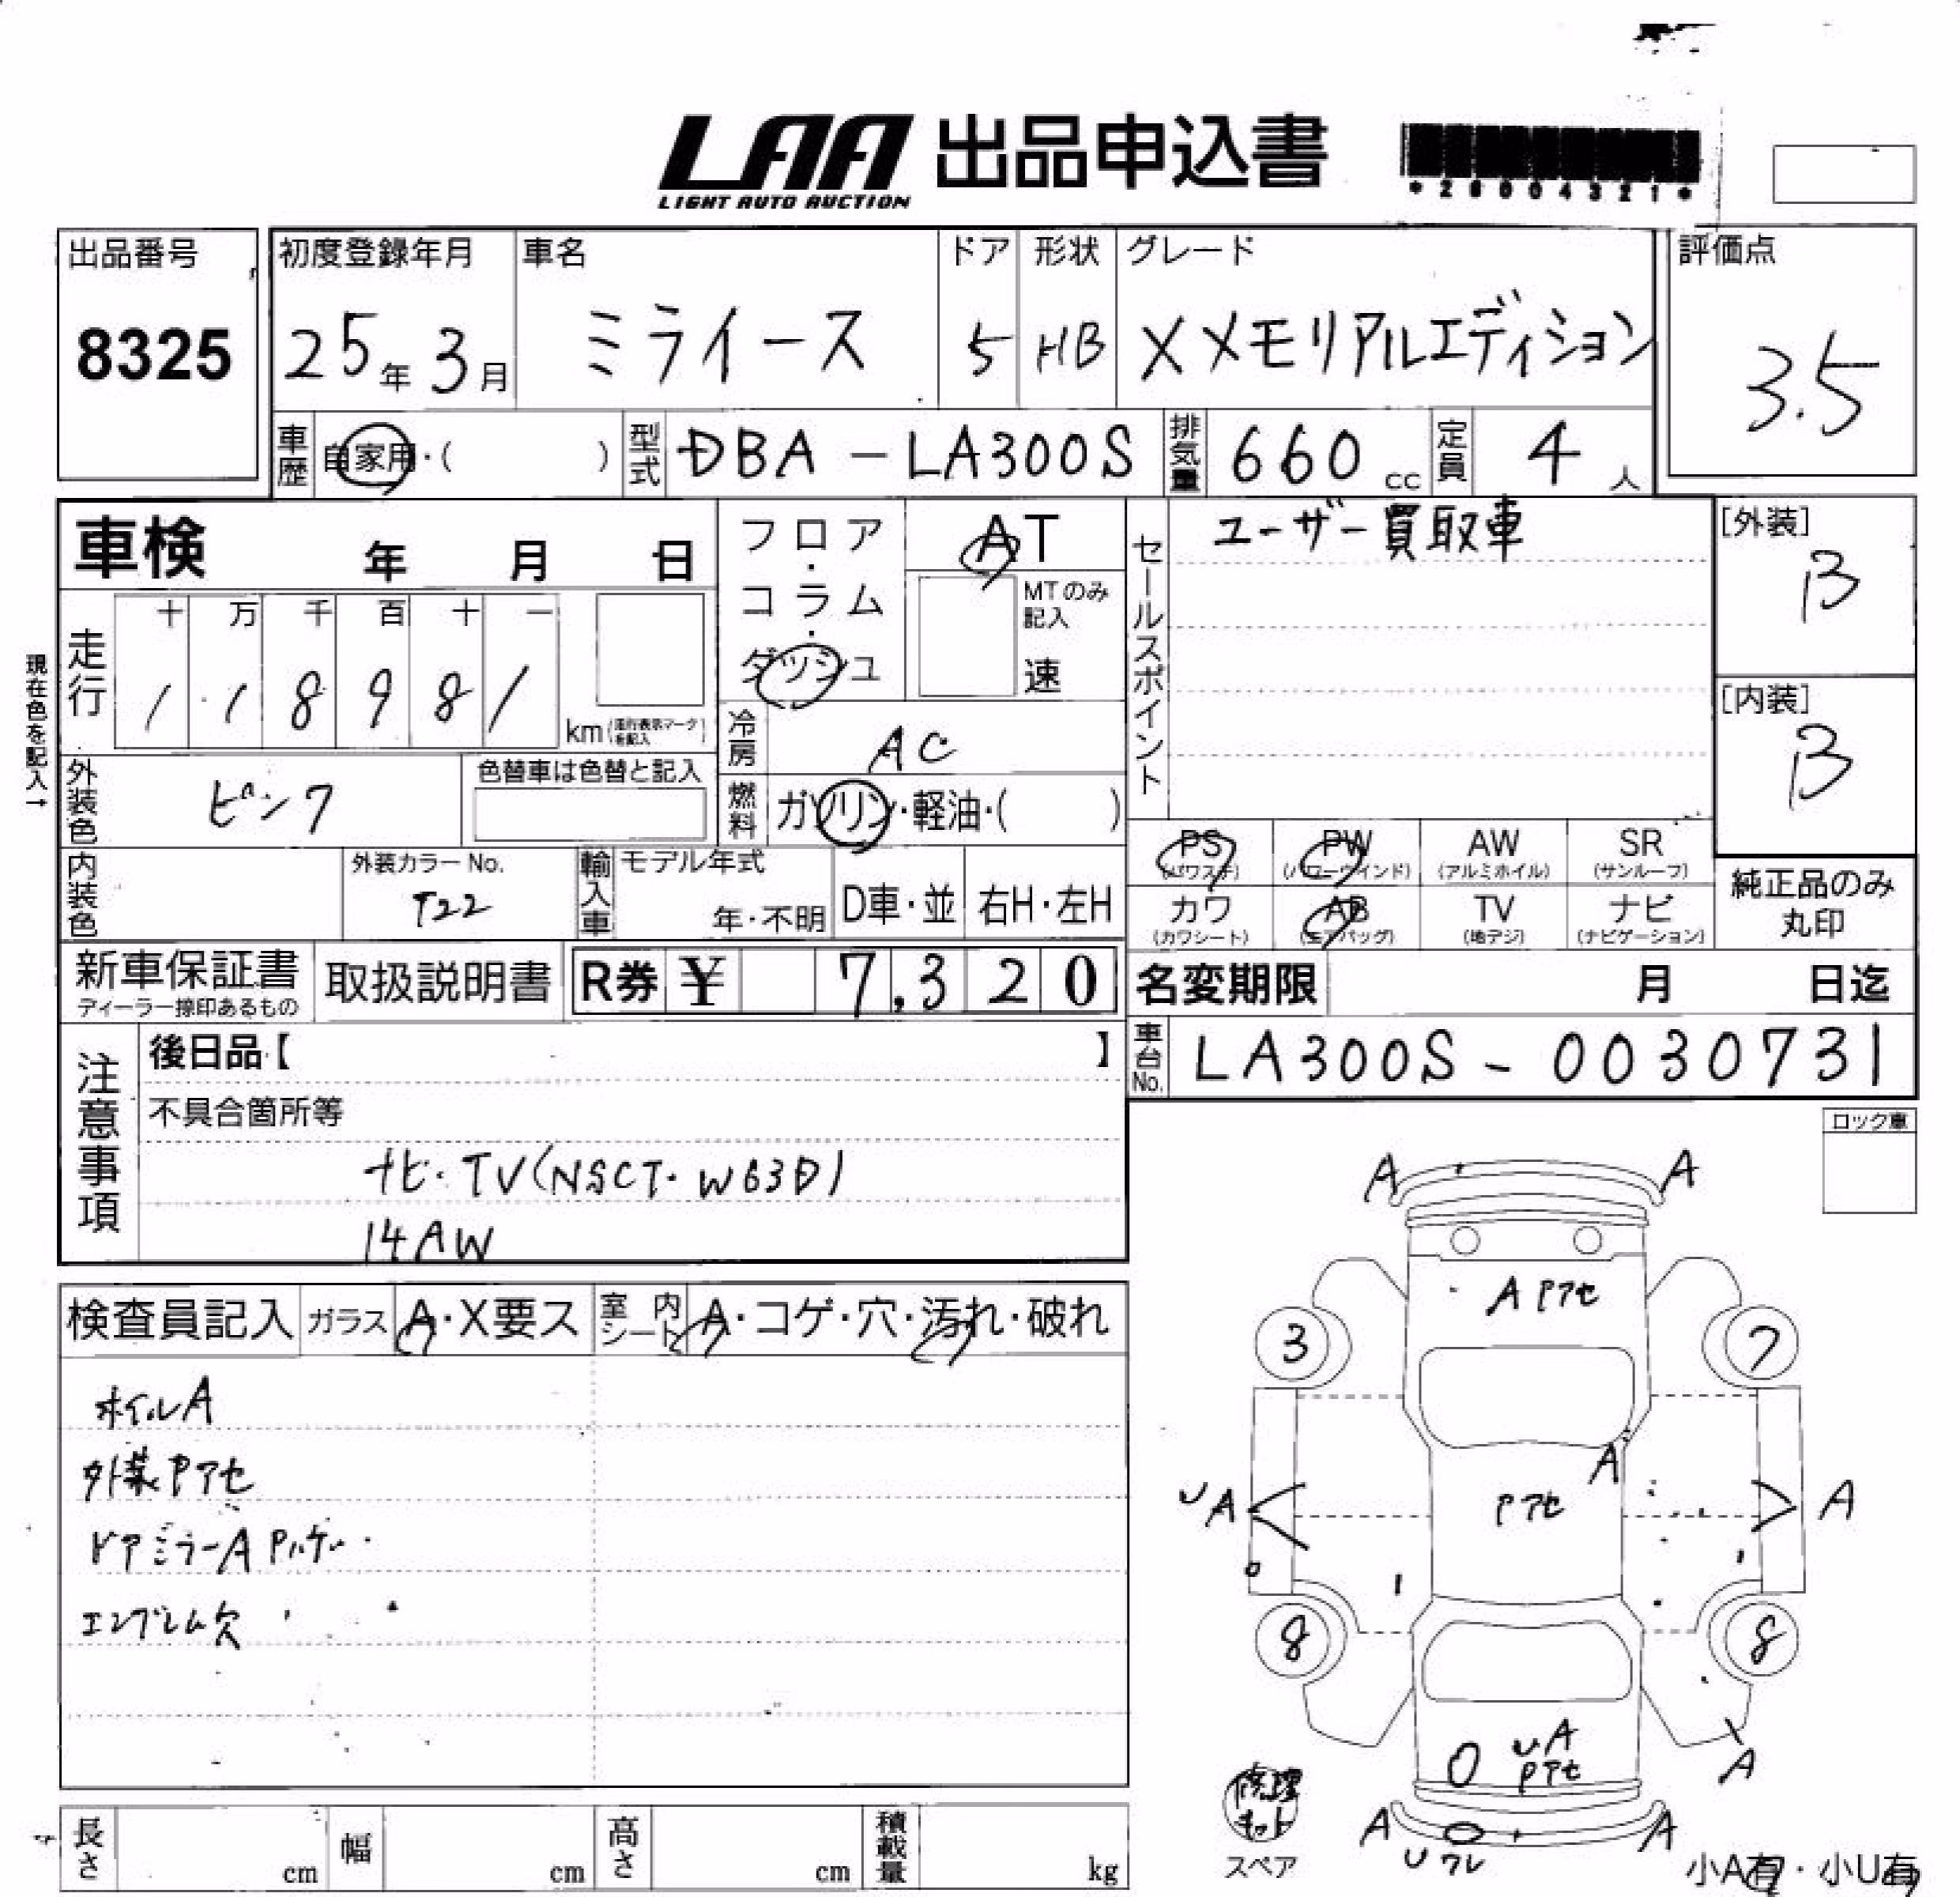 LAA 出品申込書
LIGHT AUTO AUCTION
*28004321*
出品番号
8325
初度登録年月
25年3月
車名
ミライース
ドア
5
形状
HB
グレード
XメモリアルエディションX
評価点
3.5
車歴 自家用・( )
型式 DBA-LA300S
排気量 660cc
定員 4人
車検 年 月 日
フロア・コラム・ダッシュ
AT
MTのみ記入
速
セールスポイント
ユーザー買取車
[外装]
B
[内装]
B
現在色を記入→
走行
十 万 千 百 十 一
1 1 8 9 8 1
km(走行表示マークを記入)
冷房 AC
燃料 ガソリン・軽油・( )
外装色 ピンク
色替車は色替と記入
PS (パワステ) PW (パワーウインド) AW (アルミホイル) SR (サンルーフ)
カワ (カワシート) AB (エアバッグ) TV (地デジ) ナビ (ナビゲーション)
純正品のみ丸印
内装色
外装カラーNo.
T22
輸入車 モデル年式 年・不明 D車・並 右H・左H
新車保証書
ディーラー捺印あるもの
取扱説明書
R券 ¥ 7,320
名変期限 月 日迄
車台No. LA300S-0030731
注意事項
後日品【 】
不具合箇所等
ナビ・TV(NSCT-W63D)
14AW
ロック車
検査員記入 ガラス A・X要ス 室内シート A・コゲ・穴・汚れ・破れ
ホイルA
外装Pアセ
ドアミラーA Pハゲ
エンブレム欠
A A
A Pアセ
3 7
A
UA Pアセ A
8 8
UA
Pアセ
A
A A
U ワレ
修理キット
スペア
小A有・小U有
長さ cm 幅 cm 高さ cm 積載量 kg